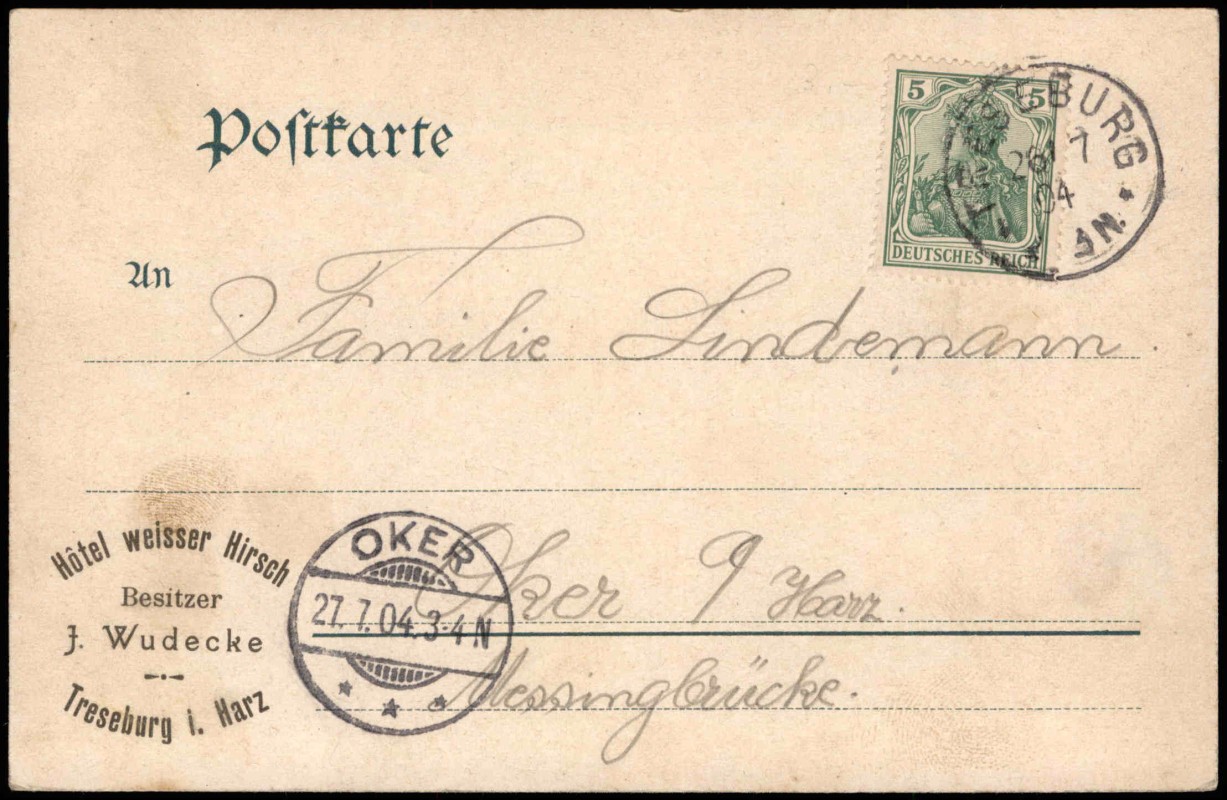 Postkarte
5 5
DEUTSCHES REICH
TRESEBURG
26 7
04
* AN. *
An
Familie Lindemann
Oker 9/Harz.
Messingbrücke.
OKER
27.7.04.3-4 N
Hôtel weisser Hirsch
Besitzer
J. Wudecke
Treseburg i. Harz